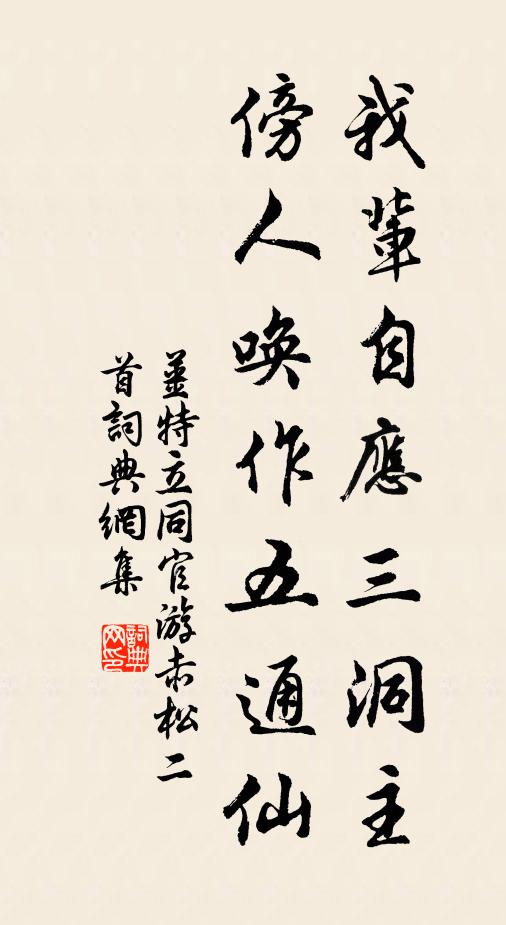 我輩自應三洞主
傍人喚作五通仙
薑特立同官游赤松二
首詞典網集
詞典
网印